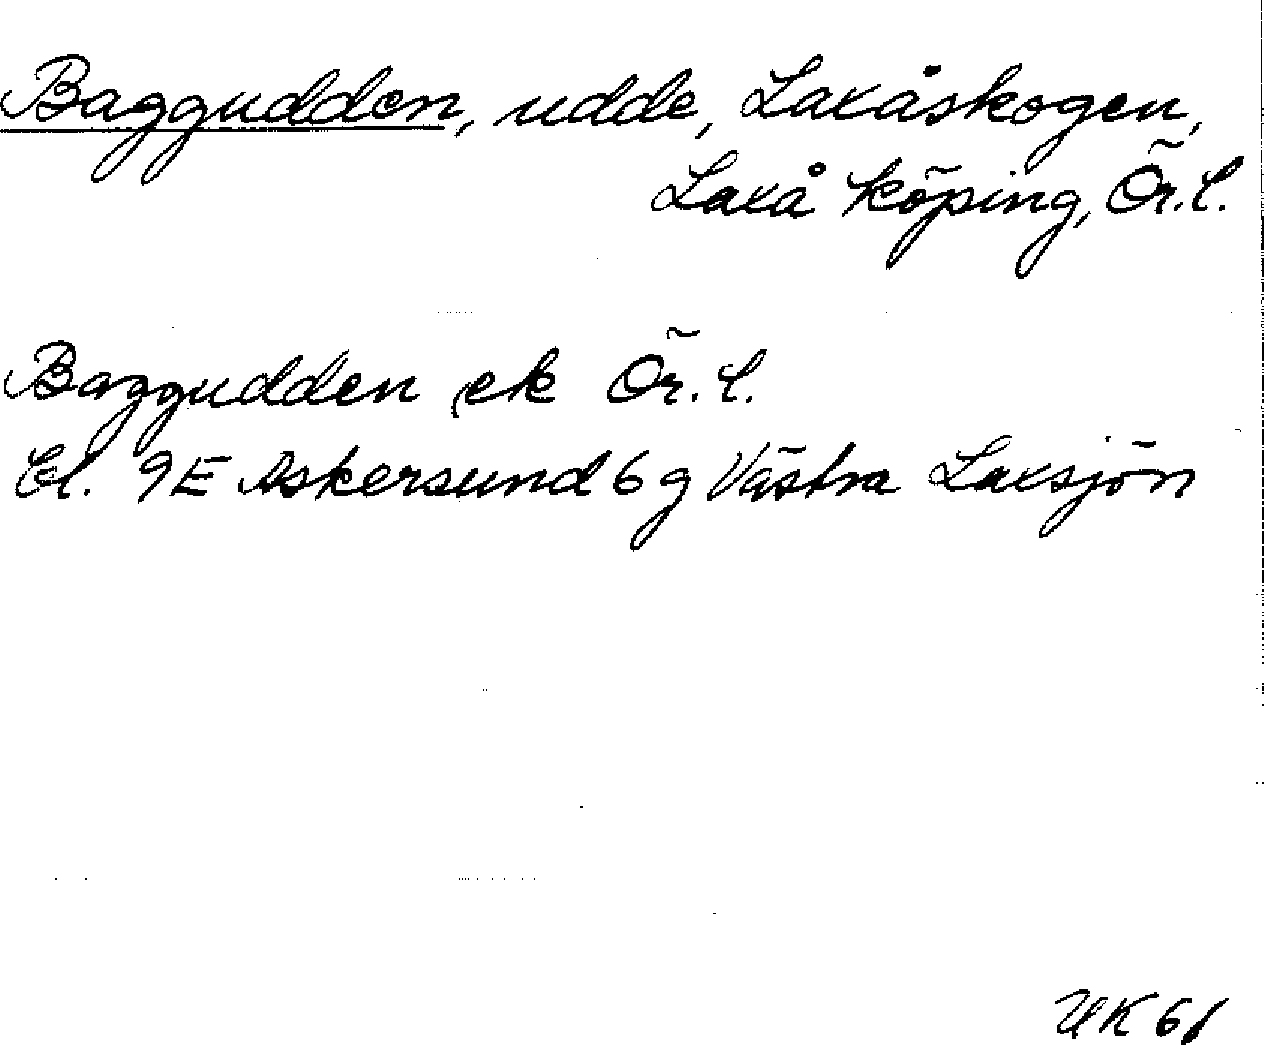 Baggudden, udde, Laxåskogen,
Laxå köping, Ör. l.
Baggudden ek Ör. l.
bl. 9E Askersund 6 g Västra Laxsjön
UK 61